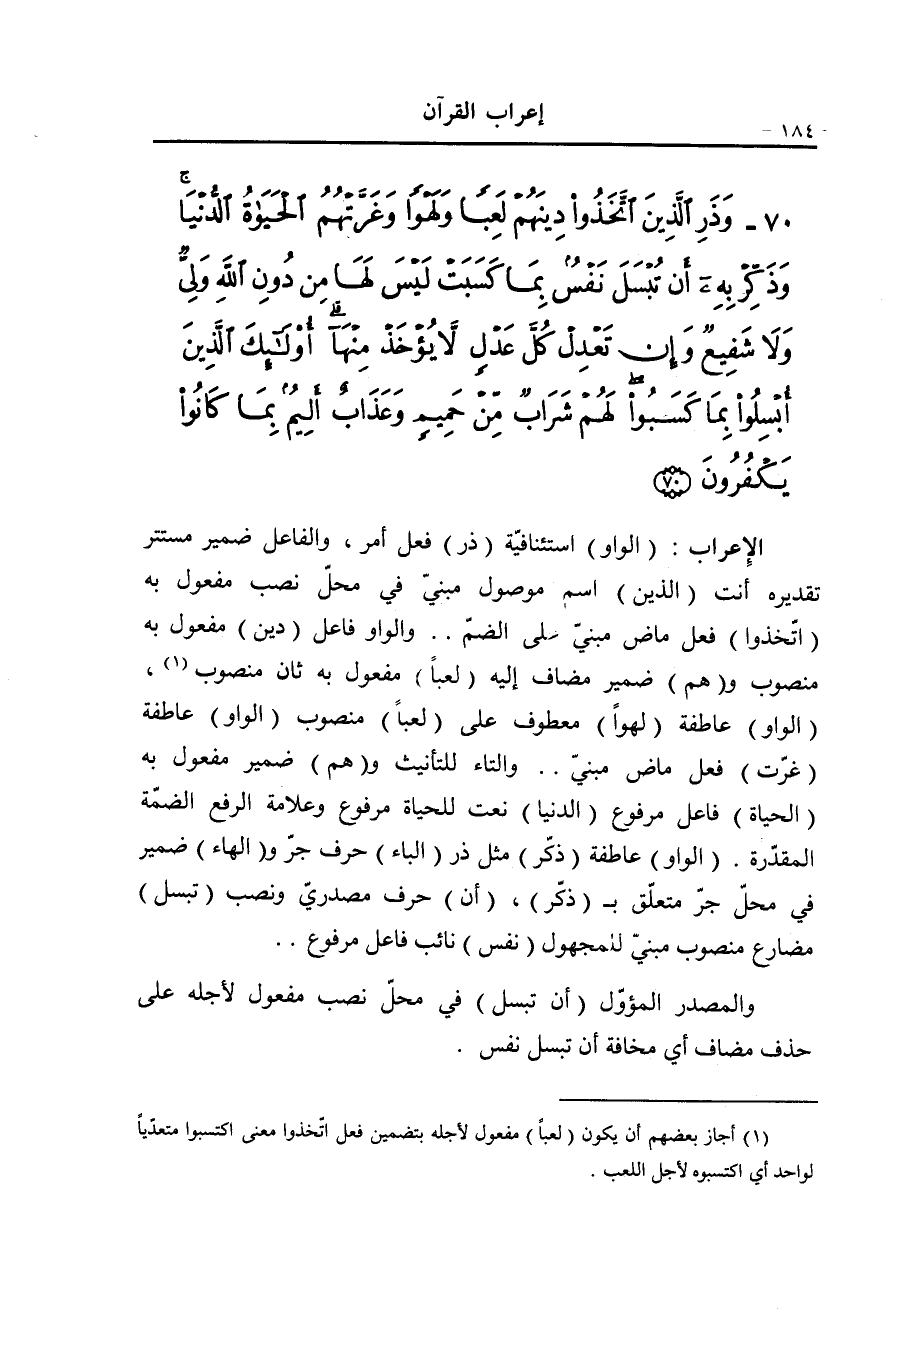 إعراب القرآن
- ١٨٤ -
٧٠ - وَذَرِ ٱلَّذِينَ ٱتَّخَذُوا۟ دِينَهُمْ لَعِبًا وَلَهْوًا وَغَرَّتْهُمُ ٱلْحَيَوٰةُ ٱلدُّنْيَا ۚ
وَذَكِّرْ بِهِۦٓ أَن تُبْسَلَ نَفْسٌۢ بِمَا كَسَبَتْ لَيْسَ لَهَا مِن دُونِ ٱللَّهِ وَلِىٌّ
وَلَا شَفِيعٌ وَإِن تَعْدِلْ كُلَّ عَدْلٍ لَّا يُؤْخَذْ مِنْهَآ ۗ أُو۟لَـٰٓئِكَ ٱلَّذِينَ
أُبْسِلُوا۟ بِمَا كَسَبُوا۟ ۖ لَهُمْ شَرَابٌ مِّنْ حَمِيمٍ وَعَذَابٌ أَلِيمٌۢ بِمَا كَانُوا۟
يَكْفُرُونَ ﴿٧٠﴾
الإعراب : ( الواو ) استئنافيّة ( ذر ) فعل أمر ، والفاعل ضمير مستتر
تقديره أنت ( الذين ) اسم موصول مبنيّ في محلّ نصب مفعول به
( اتّخذوا ) فعل ماض مبنيّ على الضمّ . . والواو فاعل ( دين ) مفعول به
منصوب و( هم ) ضمير مضاف إليه ( لعباً ) مفعول به ثان منصوب (١) ،
( الواو ) عاطفة ( لهواً ) معطوف على ( لعباً ) منصوب ( الواو ) عاطفة
( غرّت ) فعل ماض مبنيّ . . والتاء للتأنيث و( هم ) ضمير مفعول به
( الحياة ) فاعل مرفوع ( الدنيا ) نعت للحياة مرفوع وعلامة الرفع الضمّة
المقدّرة . ( الواو ) عاطفة ( ذكّر ) مثل ذر ( الباء ) حرف جرّ و( الهاء ) ضمير
في محلّ جرّ متعلّق بـ ( ذكّر ) ، ( أن ) حرف مصدريّ ونصب ( تبسل )
مضارع منصوب مبنيّ للمجهول ( نفس ) نائب فاعل مرفوع . .
والمصدر المؤوّل ( أن تبسل ) في محلّ نصب مفعول لأجله على
حذف مضاف أي مخافة أن تبسل نفس .
(١) أجاز بعضهم أن يكون ( لعباً ) مفعول لأجله بتضمين فعل اتّخذوا معنى اكتسبوا متعدّياً
لواحد أي اكتسبوه لأجل اللعب .